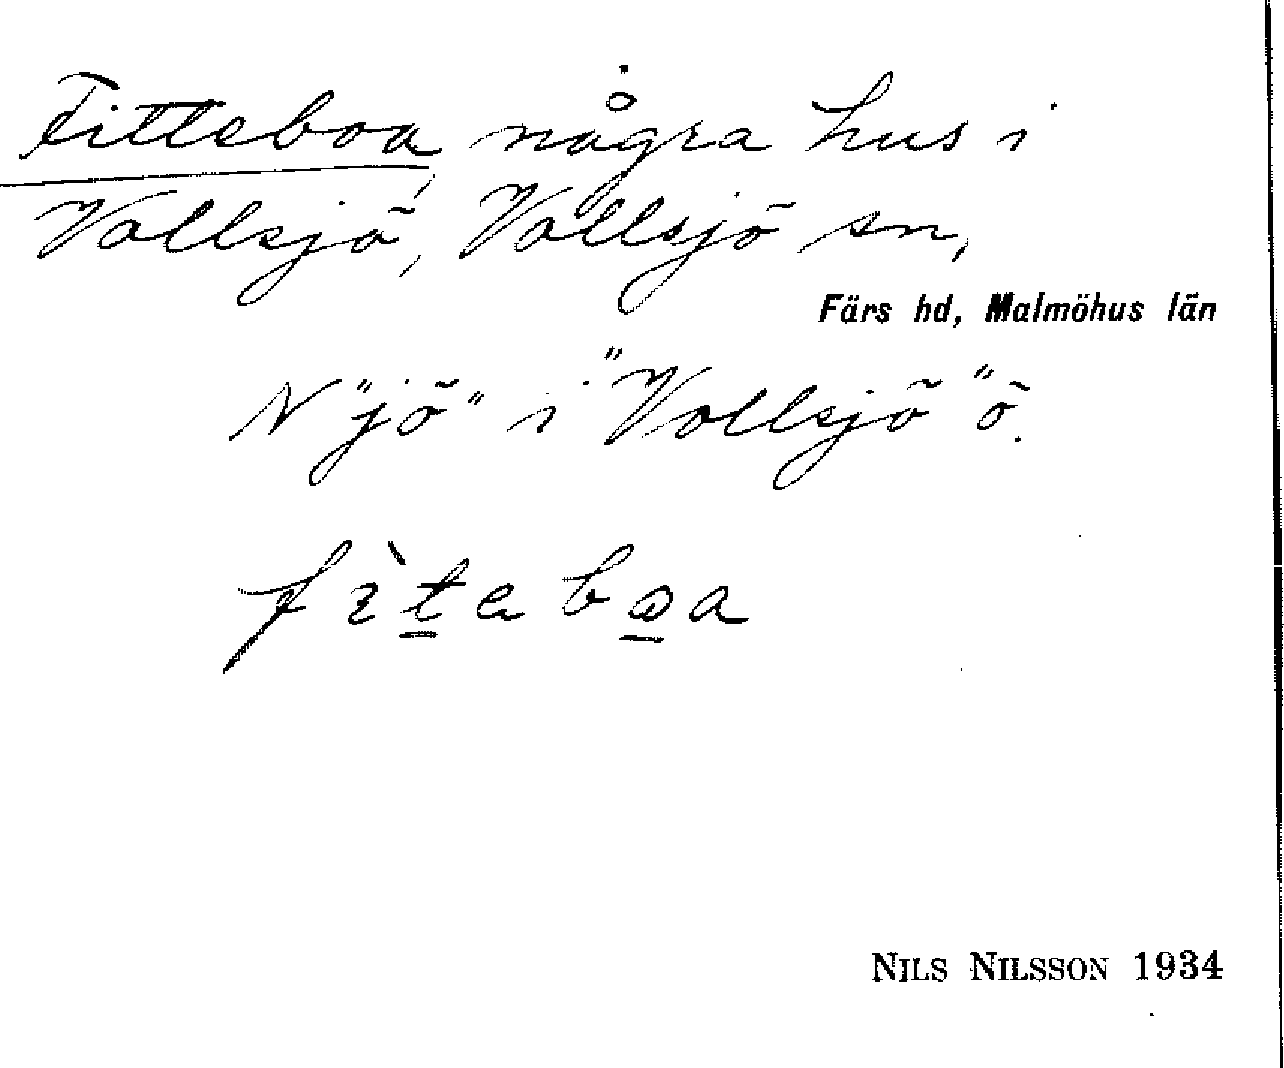 Fitteboa, några hus i
Vollsjö, Vollsjö sn,
Färs hd, Malmöhus län
N "jö" i "Vollsjö" ö.
fìteboa
NILS NILSSON 1934